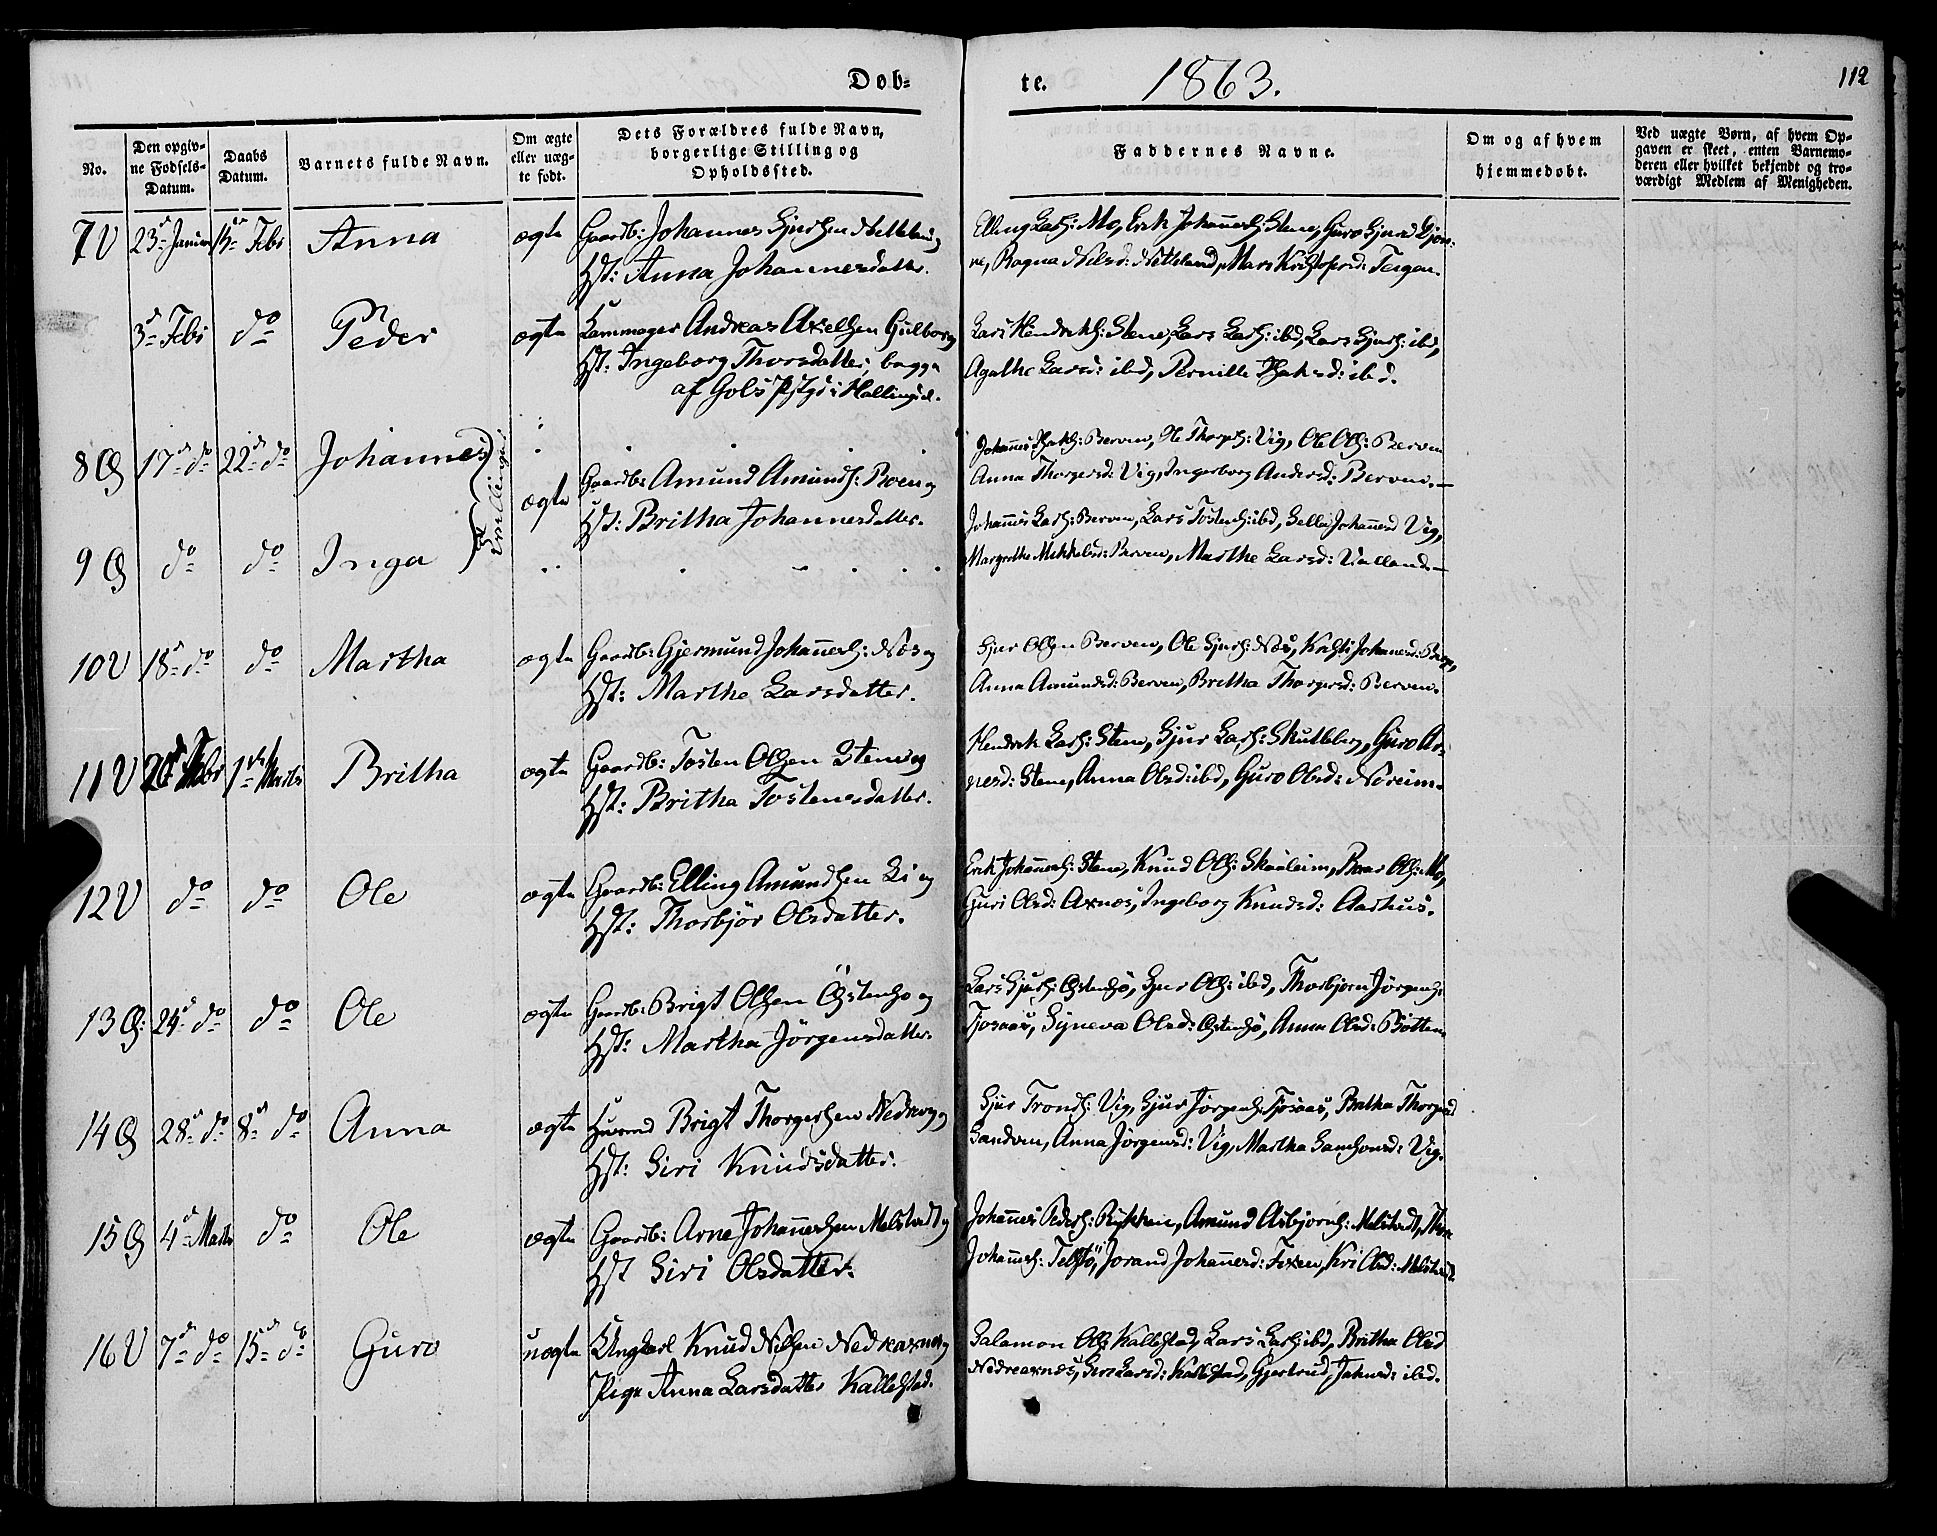 Døb-
te. 1863. 112
No.
Den opgiv-
ne Fødsels-
Datum.
Daabs
Datum.
Barnets fulde Navn.
Om ægte
eller uæg-
te født.
Dets Forældres fulde Navn,
borgerlige Stilling og
Opholdssted.
Faddernes Navne.
Om og af hvem
hjemmedøbt.
Ved uægte Børn, af hvem Op-
gaven er skeet, enten Barnemo-
deren eller hvilket bekjendt og tro-
værdigt Medlem af Menigheden.
7 V 23d Januar Febr Anna ægte Gaardb: Johannes Sjursen
Hst: Anna Johannesdatter.
Elling Lars: Mo, Erik Johannes: Stene, Guro Sjursd
Ragna Nilsd: Netteland, Mari Kristofersd: Teigen.
3d Febr do Peder ægte Andreas Axelsen Gulbor og
Hst: Ingeborg Thorsdatter, begge
af Gols Pstgd i Hallingd.
Lars Hendriks: Stene, Lars Lars: ibd, Lars Sjurs: ibd,
Agathe Larsd: ibd, Pernille ibd.
8 Ø 17d do 22d do Johannes Tvillinger
ægte Gaardb: Amund Amunds: Boen og
Hst: Britha Johannesdatter.
Johannes Berven, Ole Thorgs: Vig, Ole Ols: Berven
Anna Thorgersd: Vig, Ingerborg Andersd: Berven.
9 Ø do do Inga
Johannes Lars: Berven, Lars Tostens: ibd, Johannesd Vig,
Margrethe Mikkelsd: Berven, Marthe Larsd:
10 V 18d do do Martha ægte Gaardb: Gjermund Johannes: Næs og
Hst: Marthe Larsdatter.
Sjur Olsen Berven, Ole Sjurs: Næs, Kristi Johannesd:
Anna Amundsd: Berven, Britha Thorgersd: Berven.
11 V Febr 1ste Marts Britha ægte Gaardb: Tosten Olsen Stene og
Hst: Britha Tostensdatter.
Hendrik Lars: Stene, Sjur Lars: Skutleberg, Guro Ar-
nesd: Stene, Anna Olsd: ibd, Guro Olsd: Noreim.
12 V do do Ole ægte Gaardb: Elling Amundsen Li og
Hst: Thorbjør Olsdatter.
Erik Johannes: Stene, Knud Ols: Skaaleim, Ols: Mo,
Guri Olsd: Axnes, Ingeborg Knudsd: Aarhus.
13 Ø: 24d do do Ole ægte Gaardb: Brigt Olsen Østensø og
Hst: Martha Jørgensdatter.
Lars Sjurs: Østensø, Sjur Ols: ibd, Thorbjørn Jørgens:
Tjosaas, Syneva Olsd: Østensø, Anna Olsd: Botten.
14 Ø 28d do 8d do Anna ægte Husmd Brigt Thorgersen Nedrevig og
Hst: Siri Knudsdatter.
Sjur Tronds: Vig, Sjur Jørgens: Tjosaas, Britha Thorgersd
Sandven, Anna Jørgensd: Vig, Martha Samsonsd: Vig.
15 Ø 4d Marts do Ole ægte Gaardb: Arne Johannesen Melstvedt og
Hst Siri Olsdatter.
Johannes Peders: Rykken, Amund Asbjørns: Melstvedt,
Johannes: Telstø, Jorand Johannesd: Foxen, Kri Olsd: Melstvedt.
16 V 7d do 15d do Guro uægte Ungkarl Knud Nilsen Nedreaxnes og
Pige Anna Larsdatter Kallestad.
Salamon Ols: Kallestad, Lars Lars: ibd, Britha Olsd
Nedreaxnes, Siri Larsd: Kallestad, Gjertrud Jakobsd: ibd.